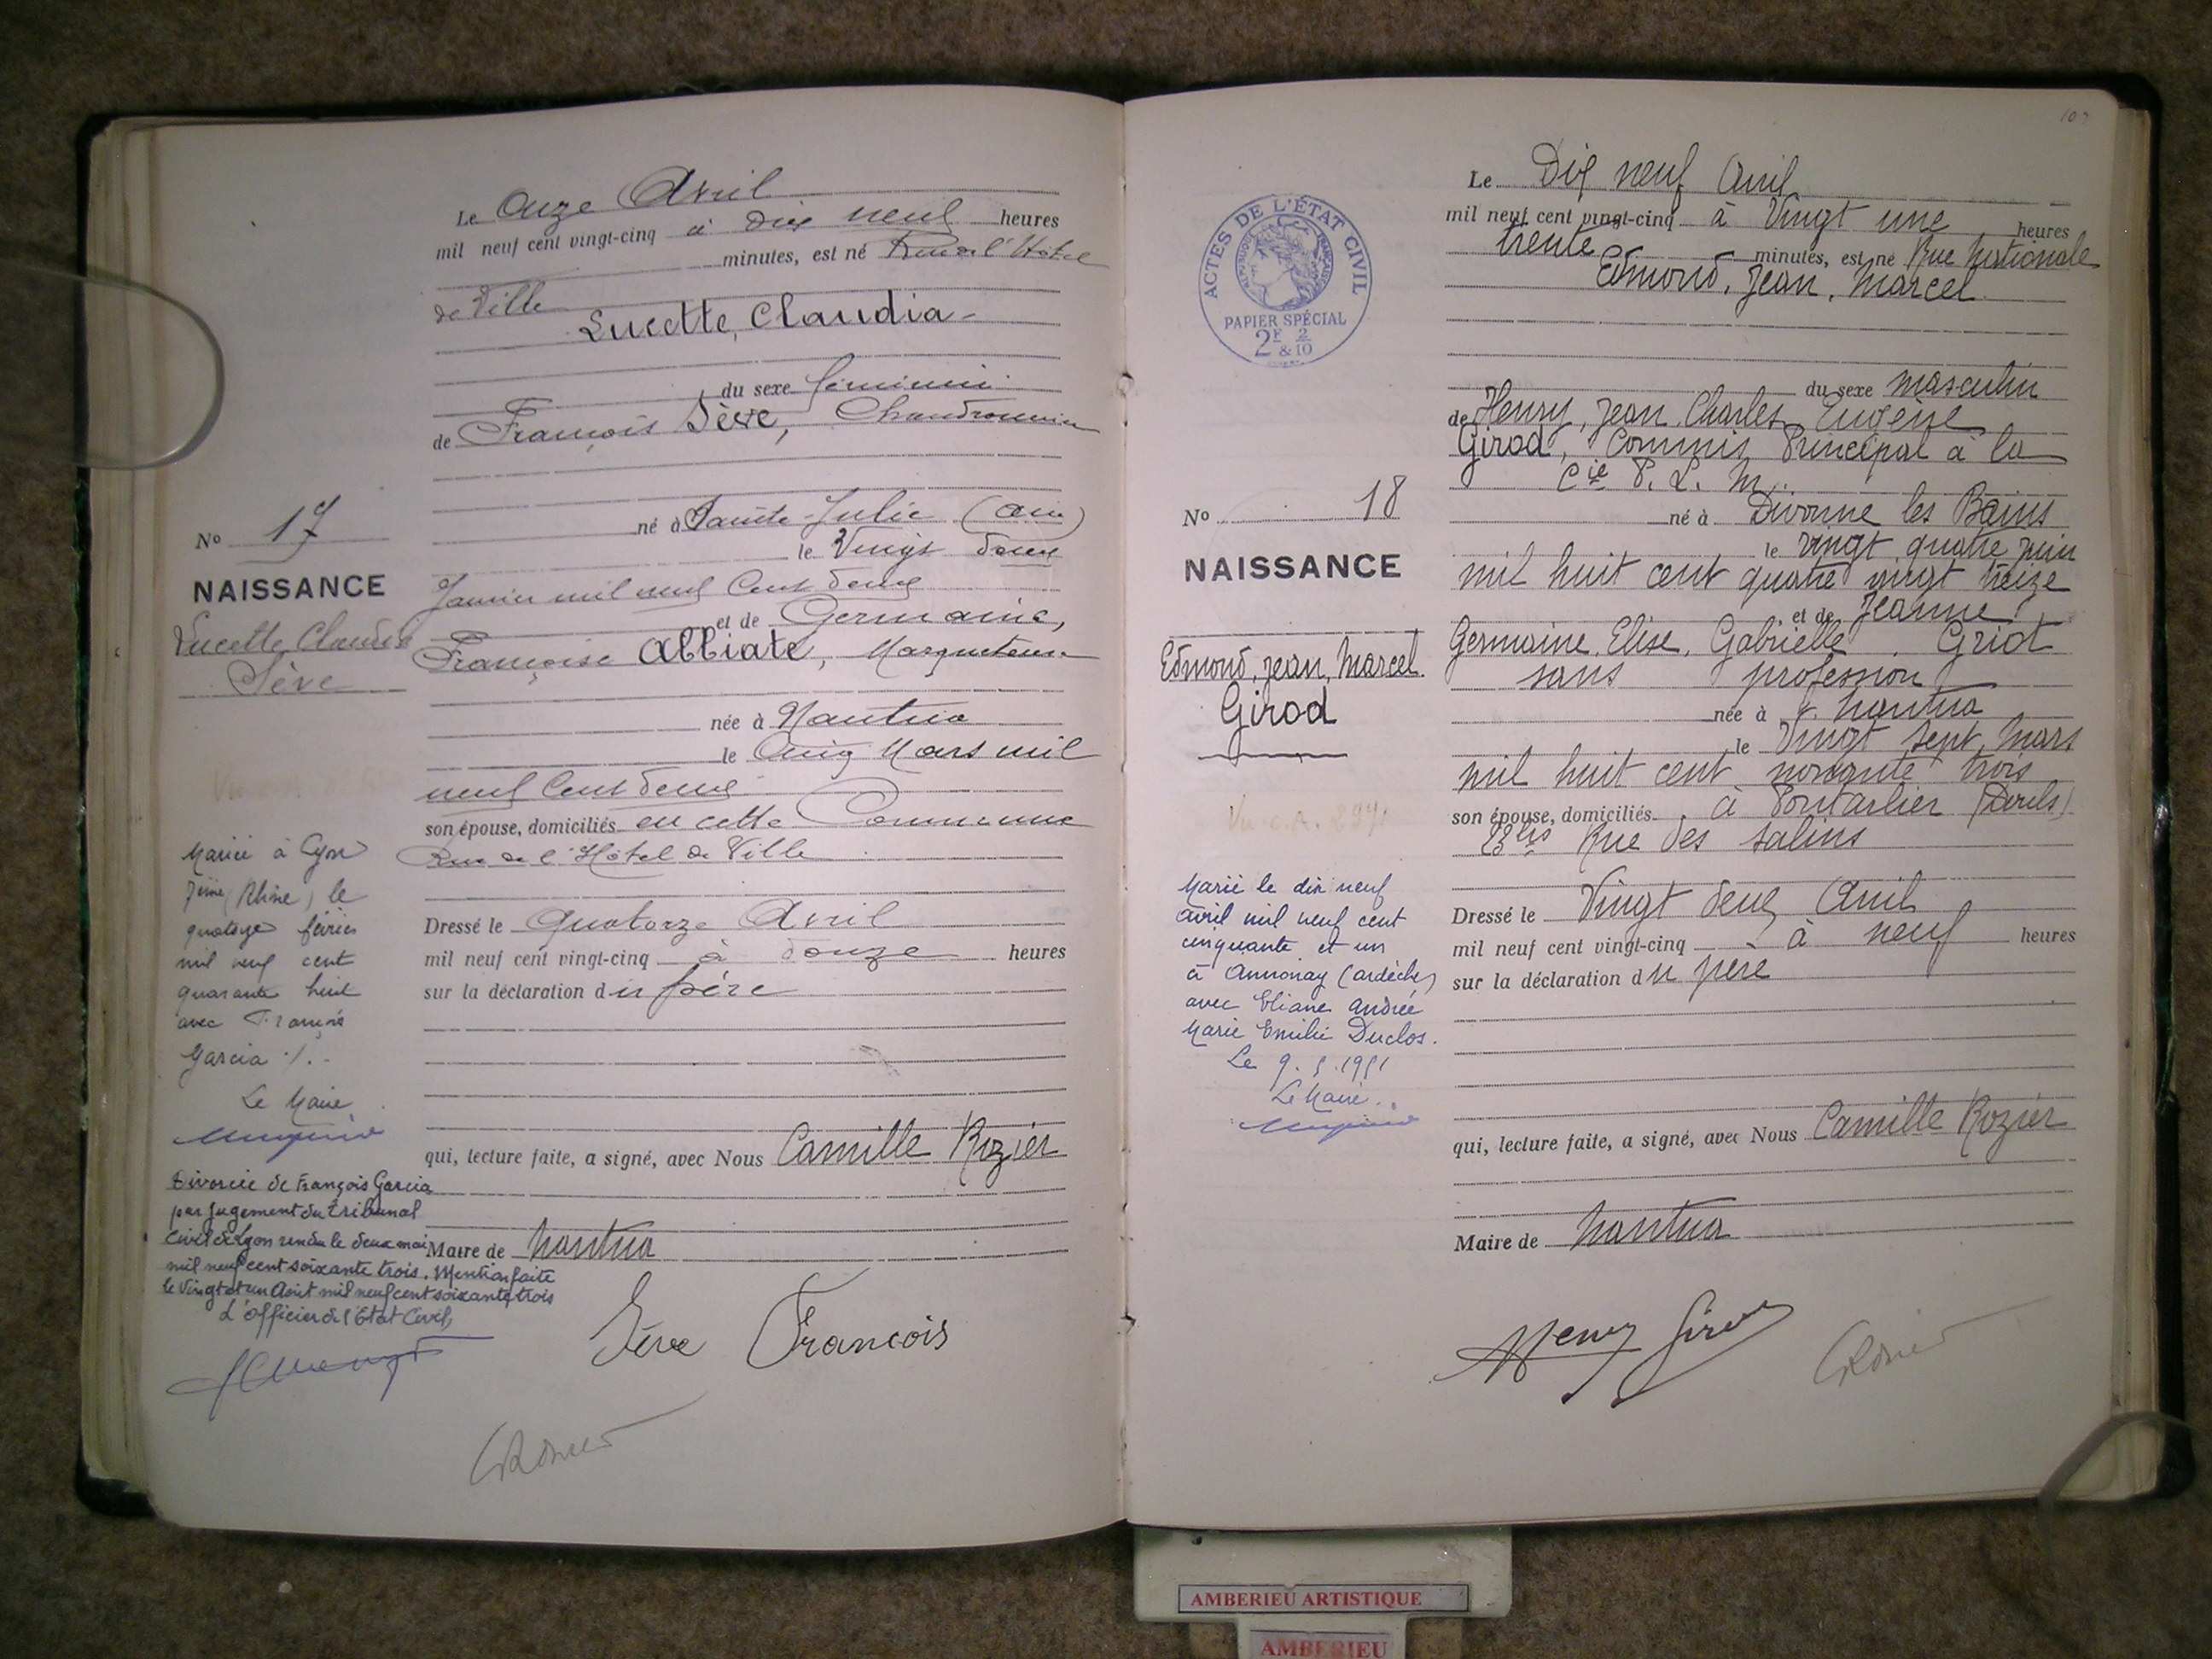 Le Onze Avril
mil neuf cent vingt-cinq à dix neuf heures
minutes, est né Rue de l'Hôtel
de Ville
Lucette, Claudia
du sexe féminin
de François Sève, Chaudronnier
né à Sainte-Julie (Ain)
le Vingt deux
Janvier mil neuf Cent deux
et de Germaine,
Françoise Abbiate,
née à Nantua
le Cinq Mars mil
neuf Cent deux
son épouse, domiciliés en cette Commune
Rue de l'Hôtel de Ville
Dressé le quatorze Avril
mil neuf cent vingt-cinq à douze heures
sur la déclaration du père
qui, lecture faite, a signé, avec Nous Camille Rozier
Maire de Nantua
Sève François
No 17
NAISSANCE
Lucette Claudia
Sève
Mariée à Lyon
7ème (Rhône) le
quatorze février
mil neuf cent
quarante huit
avec François
Garcia ./.
Le Maire
Divorcée de François Garcia
par jugement du tribunal
civil de Lyon rendu le deux mai
mil neuf cent soixante trois. Mention faite
le Vingt et un Août mil neuf cent soixante trois
L'officier de l'Etat Civil,
ACTES DE L'ÉTAT CIVIL
PAPIER SPÉCIAL
2F 2
& 10
No 18
NAISSANCE
Edmond, Jean, Marcel
Girod
Marié le dix neuf
avril mil neuf cent
cinquante et un
à Annonay (Ardèche)
avec Eliane Andrée
Marie Emilie Duclos.
Le 9.5.1951
Le Maire.
Le Dix neuf Avril
mil neuf cent vingt-cinq à Vingt une heures
trente minutes, est né Rue Nationale
Edmond, Jean, Marcel
du sexe masculin
de Henry, Jean, Charles, Eugène
Girod, Commis Principal à la
Cie P. L. M.
né à Divonne les Bains
le vingt quatre juin
mil huit cent quatre vingt treize
et de Jeanne
Germaine, Elise, Gabrielle, Griot
sans profession
née à Nantua
le Vingt sept Mars
mil huit cent nonante trois
son épouse, domiciliés à Pontarlier (Doubs)
23 bis Rue des Salins
Dressé le Vingt deux Avril
mil neuf cent vingt-cinq à neuf heures
sur la déclaration du père
qui, lecture faite, a signé, avec Nous Camille Rozier
Maire de Nantua
Henry Girod
AMBERIEU ARTISTIQUE
AMBERIEU